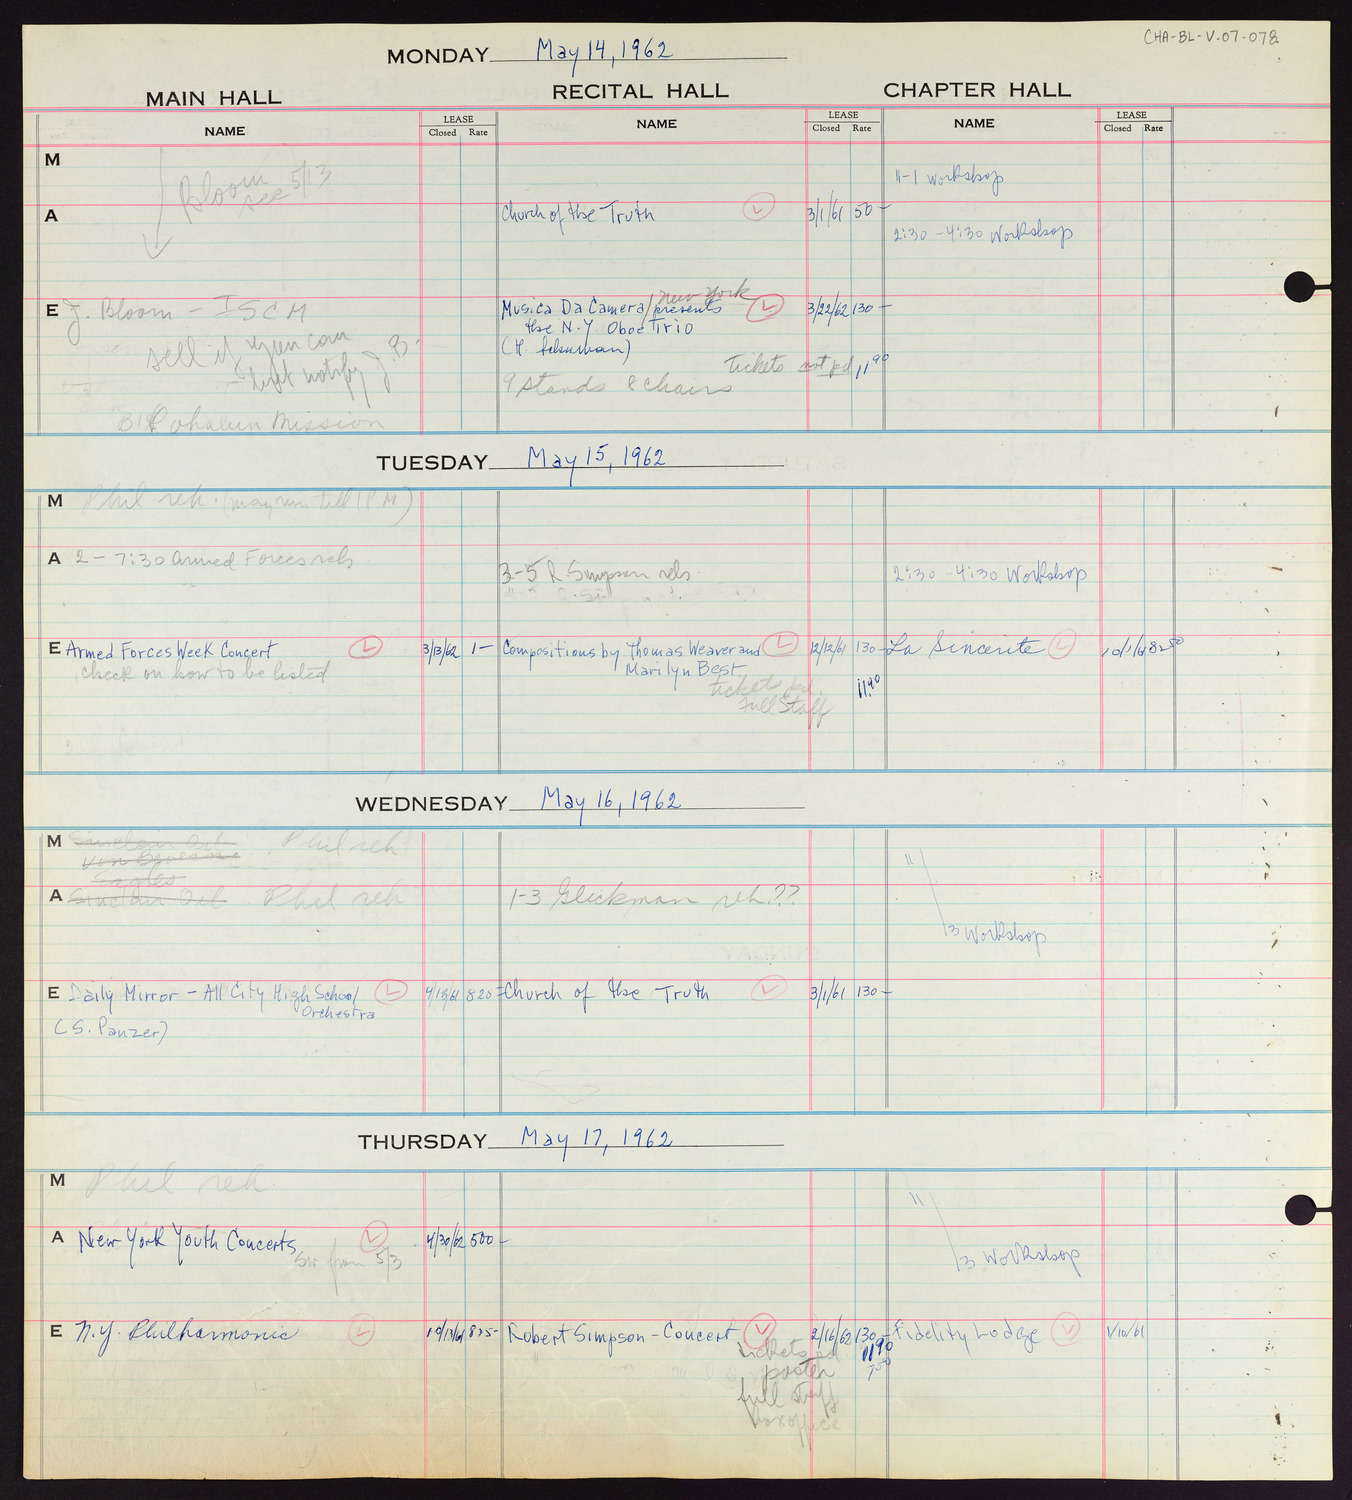 CHA-BL-V-07-078
MONDAY May 14, 1962
MAIN HALL RECITAL HALL CHAPTER HALL
NAME LEASE Closed Rate NAME LEASE Closed Rate NAME LEASE Closed Rate
M
Bloom
see 5/13
11-1 Workshop
A
Church of the Truth 3/1/61 50-
2:30-4:30 Workshop
E
J. Bloom - ISCM
sell if you can
but notify J B.
Mission
new york
Musica Da Camera/presents 3/22/62 130-
the N.Y. Oboe Trio
tickets not pd 11 90
9 stands 8 chairs
TUESDAY May 15, 1962
M Phil reh. (may run till 1 PM)
A 2-7:30 Armed Forces rehs
3-5 R Simpson rehs.
2:30-4:30 Workshop
E Armed Forces Week Concert 3/13/62 1-
check on how to be listed
Compositions by Thomas Weaver and 12/12/61 130-
Marilyn Best
tickets pd. 11.90
Full Staff
La Sincerite 10/1/61 82 50
WEDNESDAY May 16, 1962
M Sinclair Oil Phil reh
Eagles
A Sinclair Oil Phil reh
1-3 Glickman reh.??
11
13 Workshop
E Daily Mirror - All City High School 820-
Orchestra
(S. Panzer)
Church of the Truth 3/1/61 130-
THURSDAY May 17, 1962
M Phil reh.
A New York Youth Concerts 4/30/62 500-
from 5/3
11
13 Workshop
E N.Y. Philharmonic 10/13/61 825-
Robert Simpson - Concert 2/16/62 130-
tickets pd 11 90
poster 7 50
full staff
box office
Fidelity Lodge 1/10/61